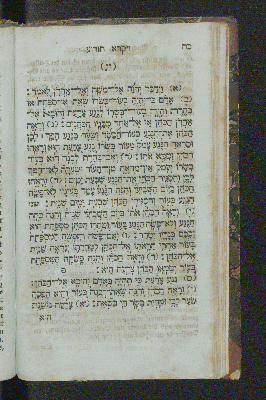 כח ויקרא תזריע
(יג)
(א) וידבר יהוה אל־משה ואל־אהרן לאמר:
(ב) אדם כי־יהיה בעור־בשרו שאת או־ספחת או
בהרת והיה בעור־בשרו לנגע צרעת והובא אל־
אהרן הכהן או אל־אחד מבניו הכהנים: (ג) וראה
הכהן את־הנגע בעור־הבשר ושער בנגע הפך לבן
ומראה הנגע עמק מעור בשרו נגע צרעת הוא וראהו
הכהן וטמא אתו: (ד) ואם־בהרת לבנה הוא בעור
בשרו ועמק אין־מראה מן־העור ושערה לא־הפך
לבן והסגיר הכהן את־הנגע שבעת ימים: (ה) וראהו
הכהן ביום השביעי והנה הנגע עמד בעיניו לא־פשה
הנגע בעור והסגירו הכהן שבעת ימים שנית: שני
(ו) וראה הכהן אתו ביום השביעי שנית והנה כהה
הנגע ולא־פשה הנגע בעור וטהרו הכהן מספחת הוא
וכבס בגדיו וטהר: (ז) ואם־פשה תפשה המספחת
בעור אחרי הראתו אל־הכהן לטהרתו ונראה שנית
אל־הכהן: (ח) וראה הכהן והנה פשתה המספחת
בעור וטמאו הכהן צרעת הוא: פ
(ט) נגע צרעת כי תהיה באדם והובא אל־הכהן:
(י) וראה הכהן והנה שאת־לבנה בעור והיא הפכה
שער לבן ומחית בשר חי בשאת: (יא) צרעת נושנת
הוא